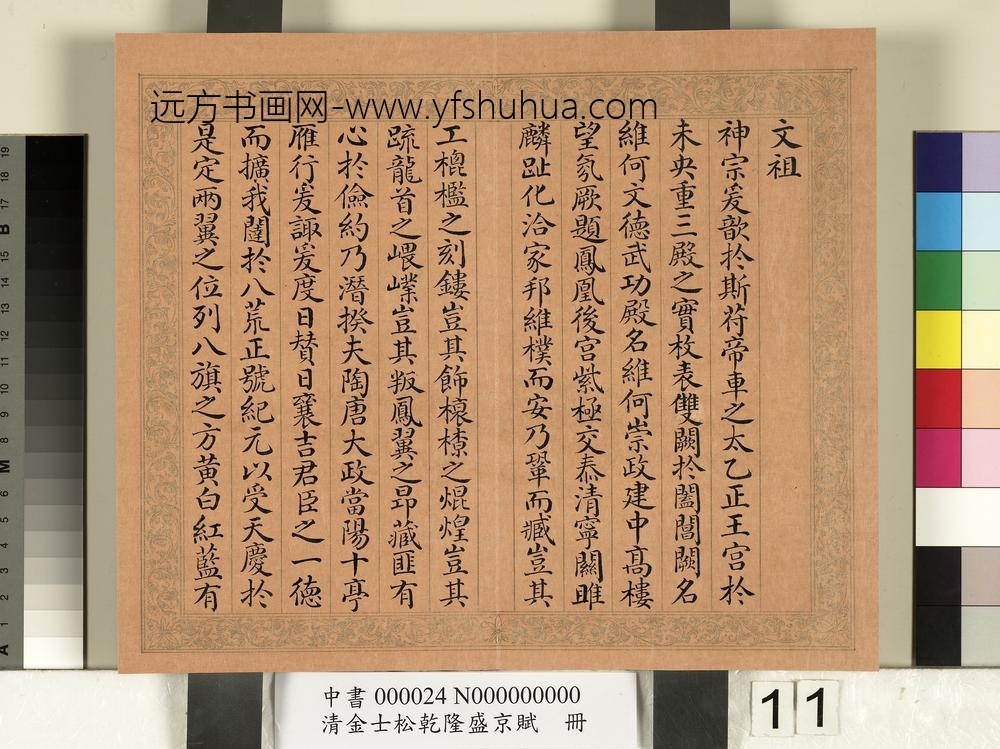 远方书画网-www.yfshuhua.com
文祖
神宗爰歆於斯苻帝車之太乙正王宫於
未央重三殿之實枚表雙闕於闔閭闕名
維何文德武功殿名維何崇政建中髙樓
望氛厥題鳳凰後宫紫極交泰清寧關雎
麟趾化洽家邦維樸而安乃鞏而臧豈其
工梐檻之刻鏤豈其飾榱橑之焜煌豈其
疏龍首之㟪嶪豈其叛鳳翼之昻藏匪有
心於儉約乃潛揆夫陶唐大政當陽十亭
雁行爰諏爰度曰賛曰襄吉君臣之一德
而擴我闥於八荒正號紀元以受天慶於
是定兩翼之位列八旗之方黄白紅藍有
中書 000024 N000000000
清金士松乾隆盛京賦 冊
11
19
18
17
B
16
15
14
13
12
11
10
9
8
M
7
6
5
4
3
2
1
A